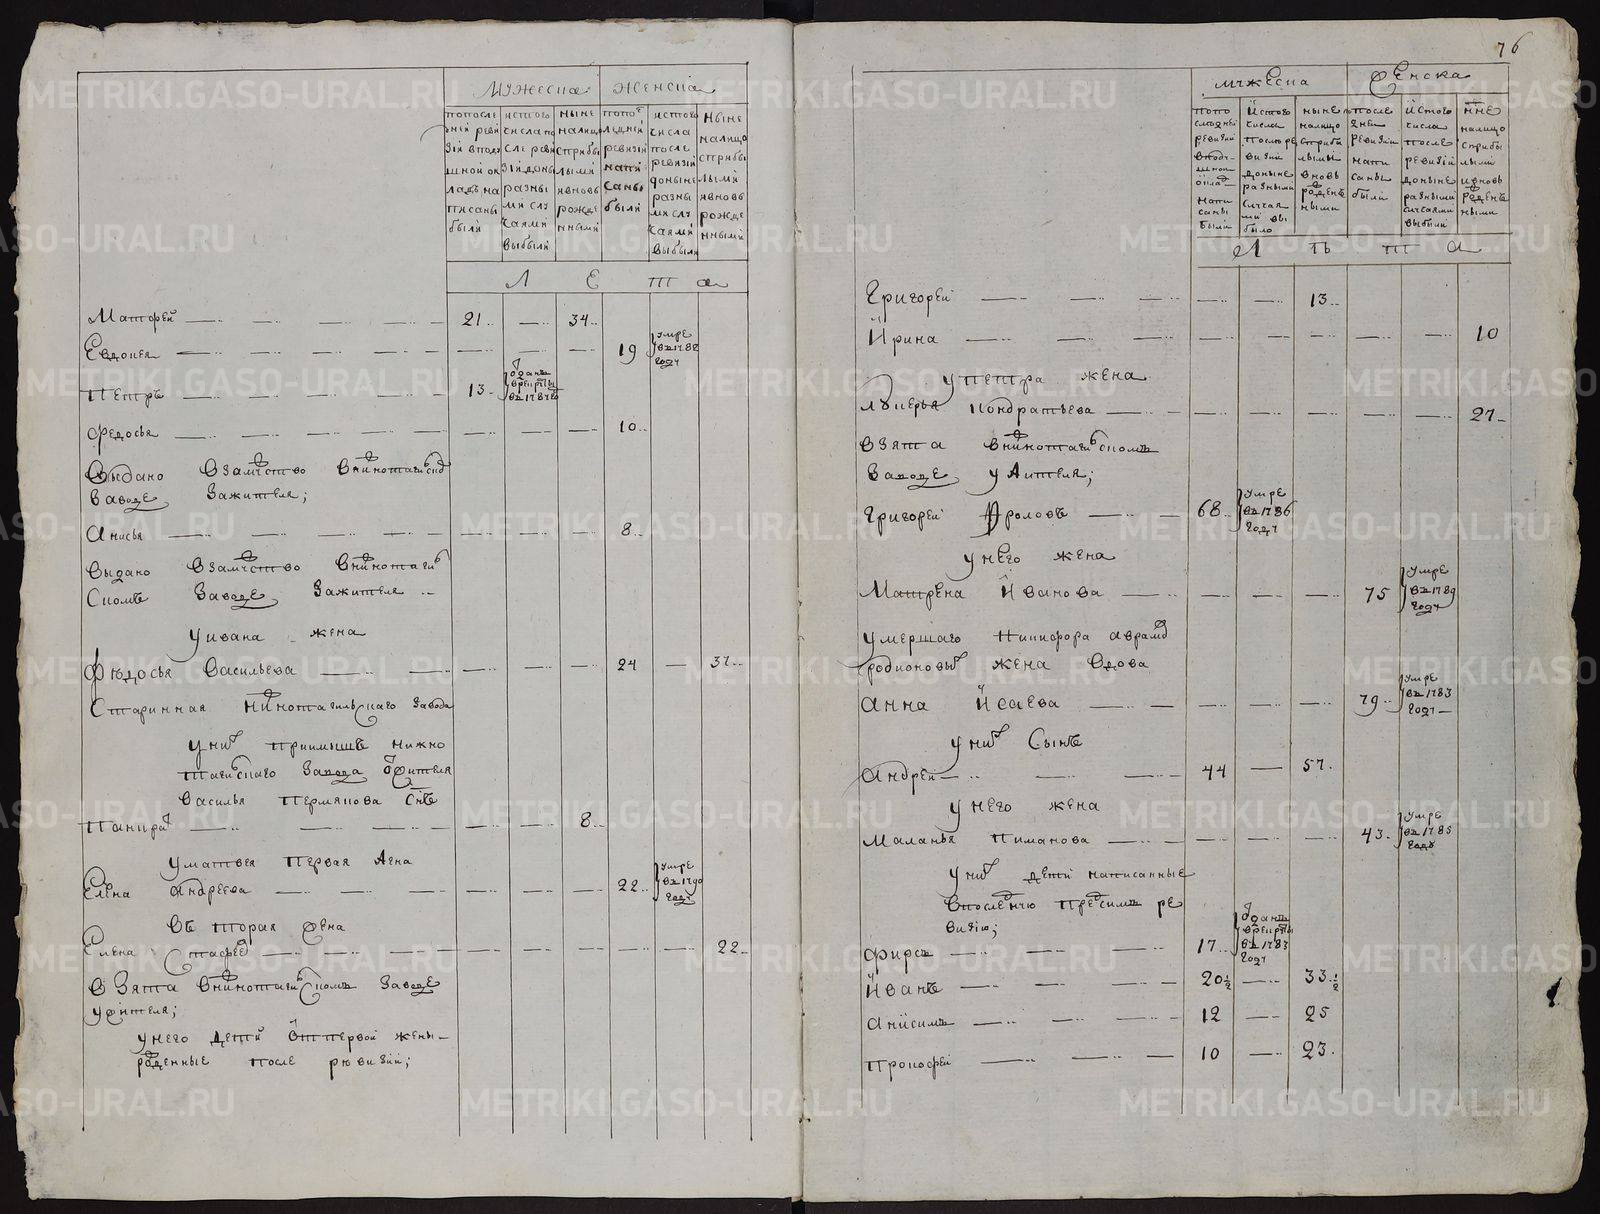 Мужеска Женска
попосле дней реви зіи вподу шной ок ладъ на писаны были
истого числа по сле реви зіи доны разны ми слу чаями выбыли
ныне налицо сприбы лыми ивновь рожде нными
попос ледней ревизіи напи саны были
истого числа после ревизіи доныне разны ми слу чаями выбыли
ныне налицо сприбы лыми ивновь рожде нными
Л Е т а
Матфей 21 34
Евдокея 19 умре въ 1782 году
Петръ 13 оданъ врекруты въ 1787 го
Федосья 10
Выдано взамуство внижнотагильско
Заводе зажителя;
Анисья 8
Выдано взамуство внижнотагил
скомъ Заводе зажителя
уивана жена
Федосья Васильева 24 37
Старинная нижнотагильскаго завода
уних приимышъ нижно
тагилскаго завода жителя
Василья Пермякова снъ
Панкрат 8
уматвея первая жена
Елена андреева 22 умре въ 1790 году
въ торая жена
Елена 22
взята внижнотагилскомъ заводе
ужителя;
унего дети от первой жены
рожденные после ревизіи;
76
мужеска Женска
попо следней ревизіи вподу шной окла напи саны были
истого числа после ре визіи доныне разными случая ми вы было
ныне налицо сприбы лыми вновь рожден ными
после дней ревизіи напи саны были
истого числа после ревизіи доныне разными случаями выбыли
нне налицо сприбы лыми ивновь рожден ными
Л ѣ т а
Григорей 13
Ирина 10
упетра жена
Лукерья Кондратьева 27
взята внижнотагилскомъ
заводе ужителя;
Григорей Фроловъ 68 умре въ 1786 году
унего жена
Матрена Иванова 75 умре въ 1789 году
умершаго Никифора
родионовы жена вдова
анна Исаева 79 умре въ 1783 году
уних сынъ
андрей 44 57
унего жена
Маланья Пиманова 43 умре въ 1785 году
уних дети написанные
впоследнюю пред симъ ре
визію;
фирсъ 17 одашъ врекруты въ 1783 году
Иванъ 20½ 33½
анисимъ 12 25
прокофей 10 23